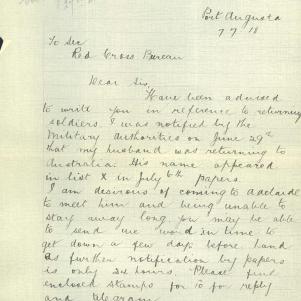 Port Augusta
7/7/18
To Sec
Red Cross Bureau
Dear Sir,
Have been advised
to write you in reference to returning
soldiers. I was notified by the
Military Authorities on June 29th
that my husband was returning to
Australia. His name appeared
in list X in July 6th papers
I am desirous of coming to Adelaide
to meet him and being unable to
stay away long you may be able
to send me word in time to
get down a few days before I land
as further notification by papers
is only 24 hours. Please find
enclosed stamps for for reply
and telegram